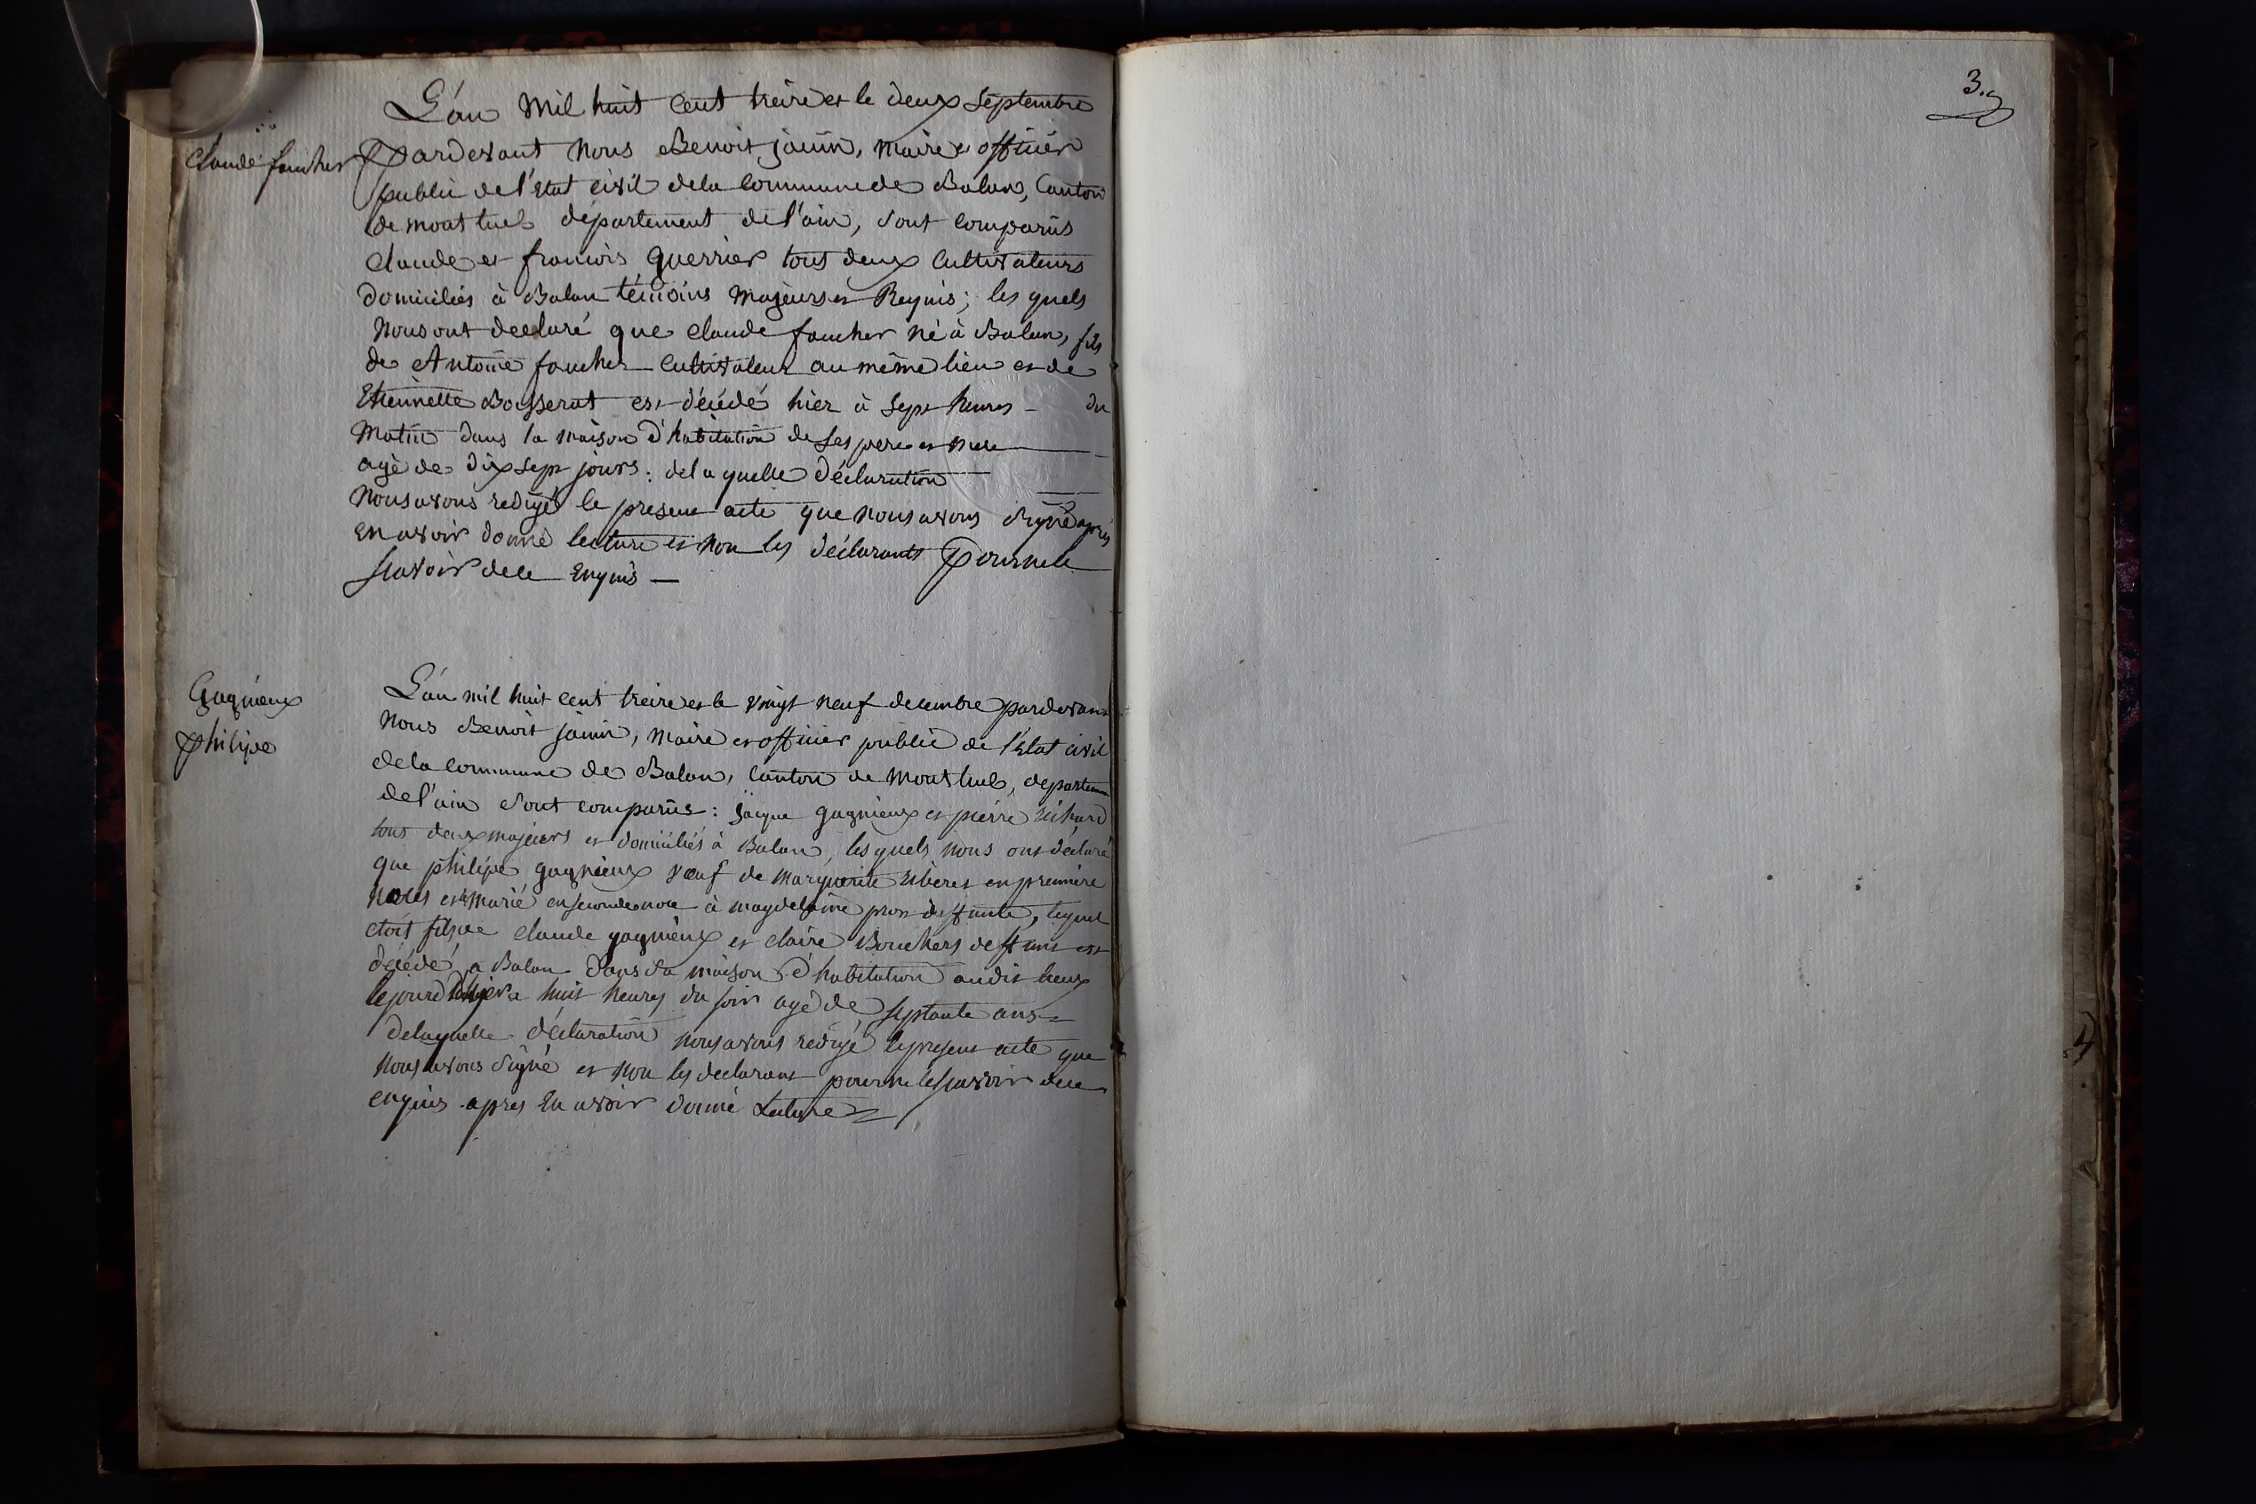 L'an mil huit cent treize et le deux septembre
claude faucher
pardevant nous Benoit janin, maire et officier
public de l'etat civil de la commune de Balan, canton
de montluel département de l'ain, sont comparûs
claude et francois guerrier tous deux cultivateurs
domiciliés à Balan témoins majeurs et Requis; les quels
nous ont declaré que claude faucher né à Balan, fils
de Antoine faucher cultivateur au même lieu et de
Etiennette Bosserat est décédé hier à sept heures - du
matin dans la maison d'habitation de ses pere et mere
agé de dix sept jours: de la quelle déclaration
nous avons redigé le present acte que nous avons signé après
en avoir donné lecture et non les déclarants pour ne le
scavoir de ce enquis -
Gagnieux
philipe
L'an mil huit cent treize et le vingt neuf decembre pardevant
nous Benoit janin, maire et officier public de l'Etat civil
de la commune de Balan, canton de montluel, departem
de l'ain sont comparûs: jacque gagnieux et pierre richard
tous deux majeurs et domiciliés à Balan, les quels nous ont déclaré
que philipe gagnieux veuf de marguerite en premiere
noces et marié en seconde noce à magdelaine deffunte, lequel
etoit fils de claude gagnieux et claire Bouchers deffunt est
décédé a Balan dans sa maison d'habitation audit lieux
le jour d'hier a huit heures du soir agé de septante ans
de laquelle déclaration nous avons redigé le present acte que
nous avons signé et non les declarant pour ne le scavoir de ce
enquis apres en avoir donné Lecture
3.
4